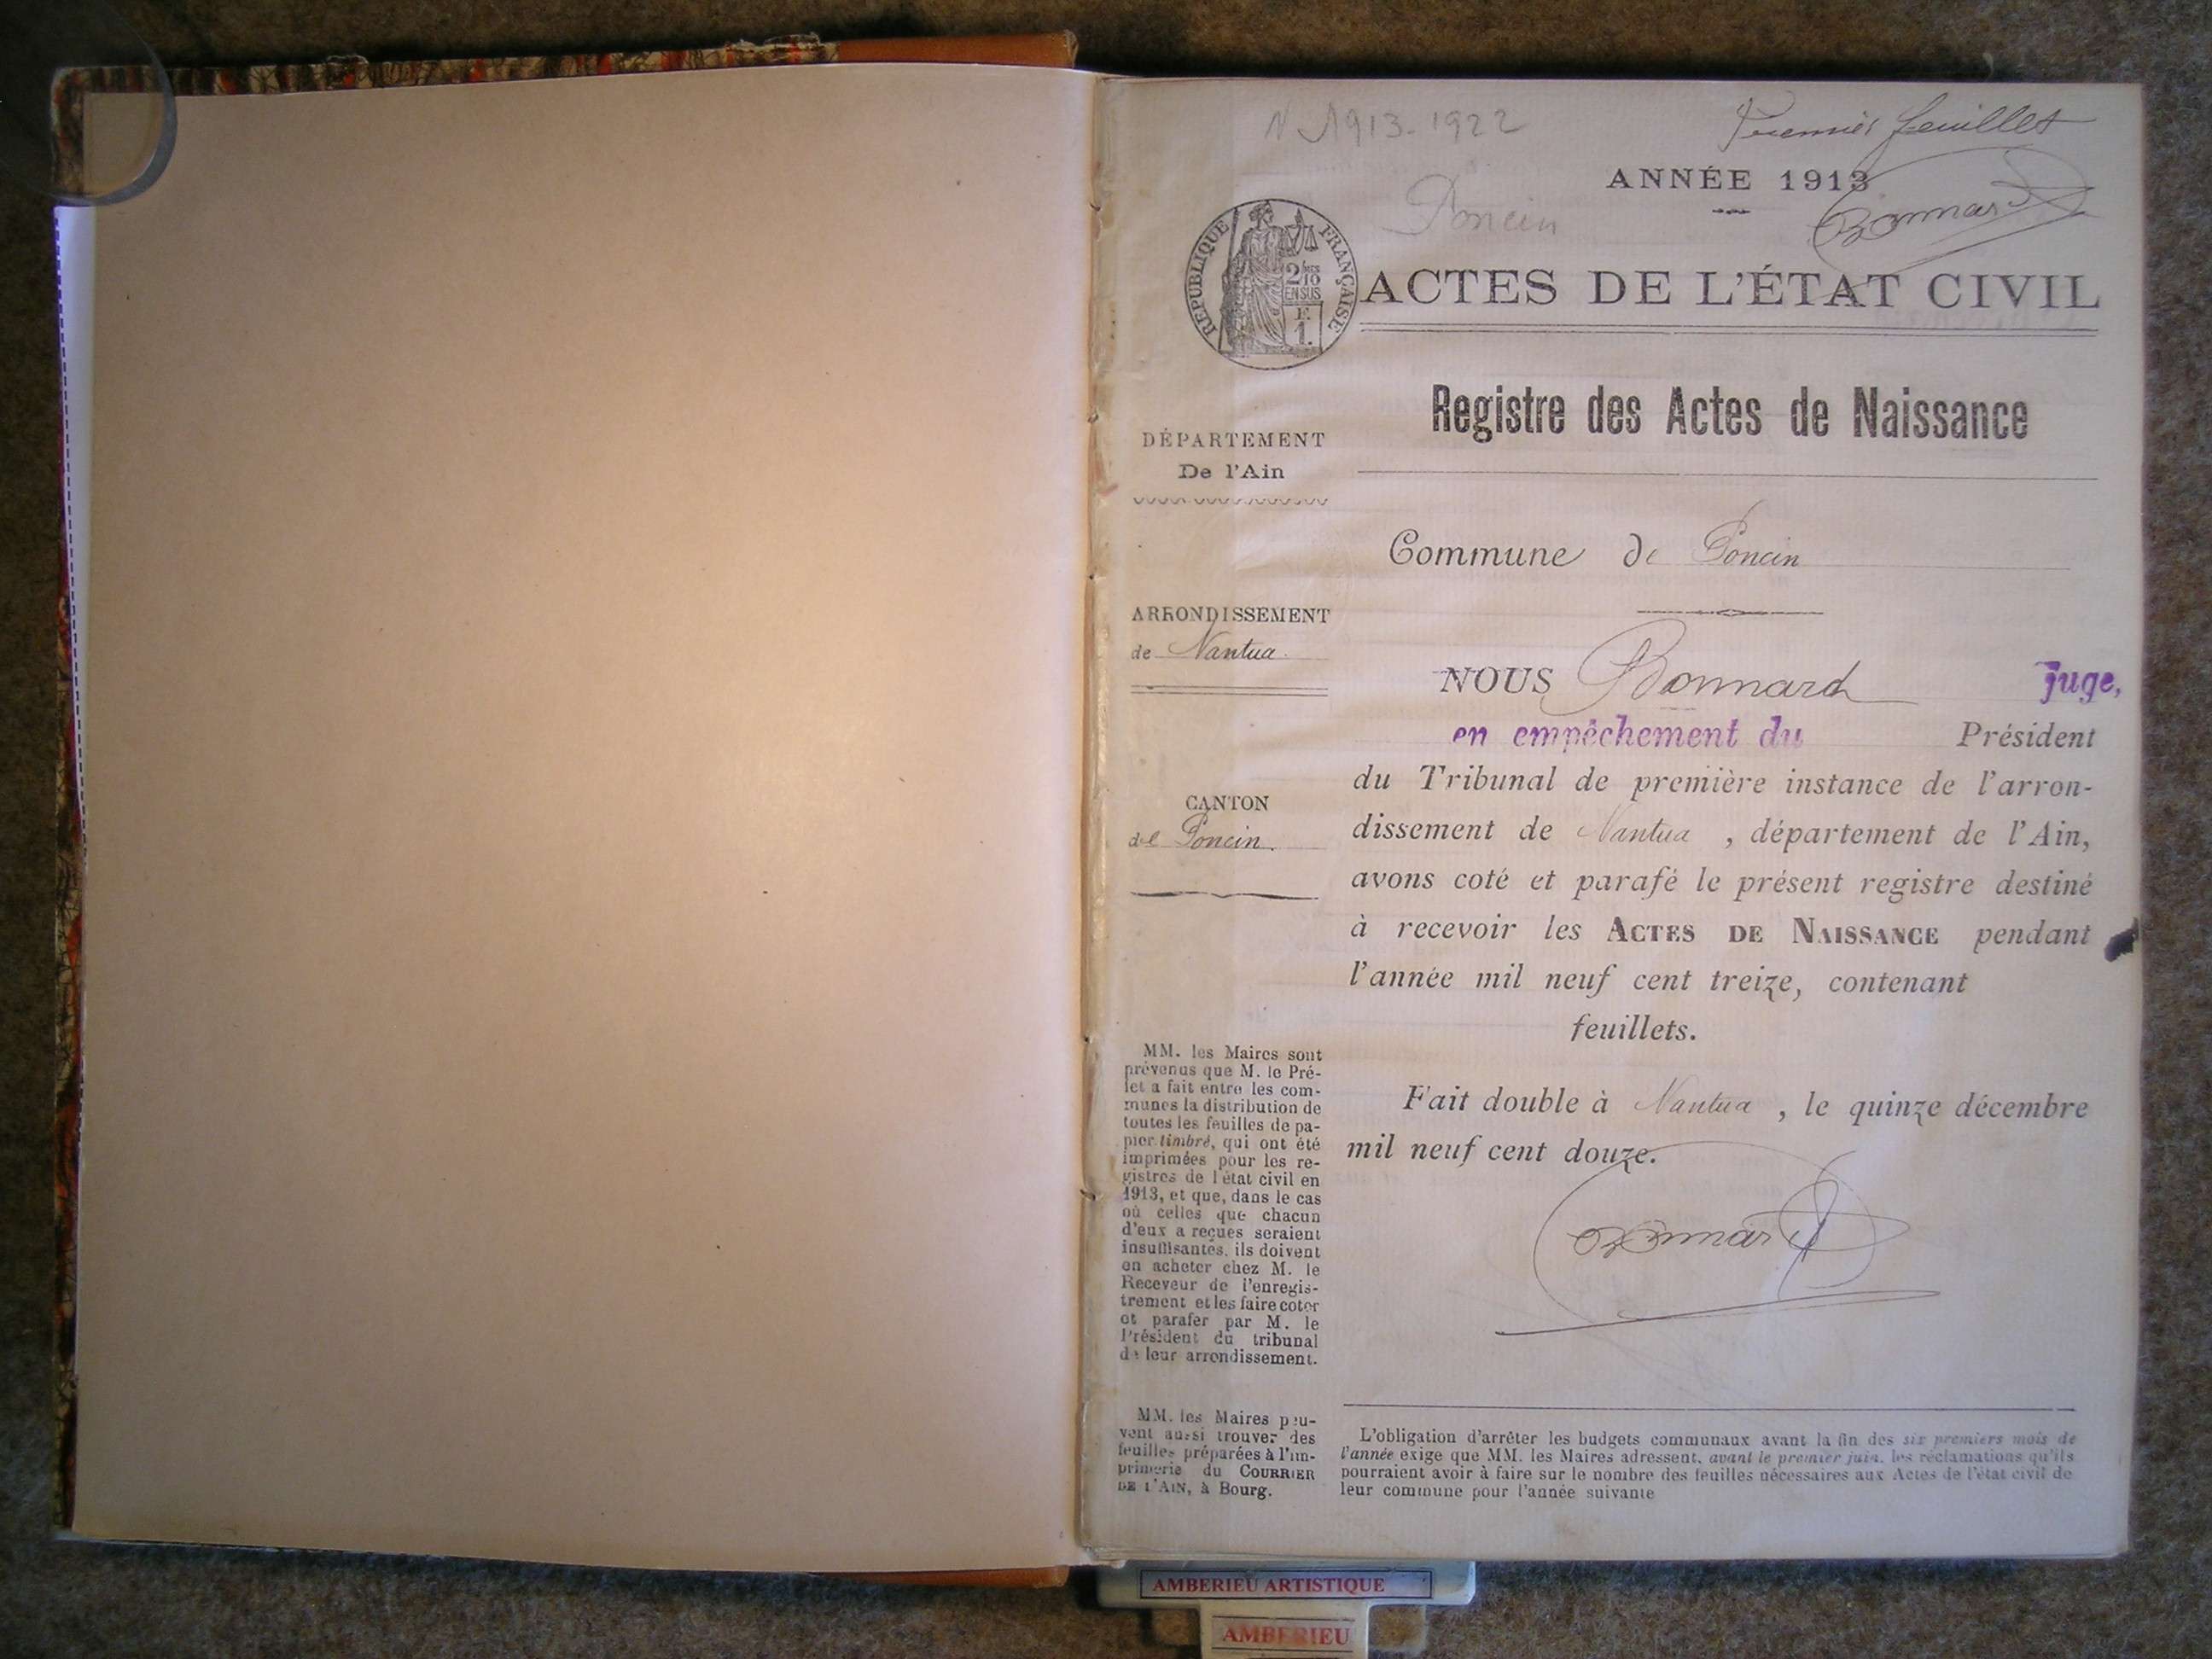 N 1913-1922
Premier feuillet
ANNÉE 1913
Poncin
Bonnard
RÉPUBLIQUE FRANÇAISE
2/10 MES
EN SUS
F.
1.
ACTES DE L'ÉTAT CIVIL
Registre des Actes de Naissance
DÉPARTEMENT
De l'Ain
Commune de Poncin
ARRONDISSEMENT
de Nantua
NOUS Bonnard juge,
en empêchement du Président
du Tribunal de première instance de l'arron-
dissement de Nantua, département de l'Ain,
avons coté et parafé le présent registre destiné
à recevoir les ACTES DE NAISSANCE pendant
l'année mil neuf cent treize, contenant
feuillets.
CANTON
de Poncin.
Fait double à Nantua, le quinze décembre
mil neuf cent douze.
Bonnard
MM. les Maires sont
prévenus que M. le Pré-
fet a fait entre les com-
munes la distribution de
toutes les feuilles de pa-
pier timbré, qui ont été
imprimées pour les re-
gistres de l'état civil en
1913, et que, dans le cas
où celles que chacun
d'eux a reçues seraient
insuffisantes, ils doivent
en acheter chez M. le
Receveur de l'enregis-
trement et les faire coter
et parafer par M. le
Président du tribunal
de leur arrondissement.
MM. les Maires peu-
vent aussi trouver des
feuilles préparées à l'im-
primerie du COURRIER
DE L'AIN, à Bourg.
L'obligation d'arrêter les budgets communaux avant la fin des six premiers mois de
l'année exige que MM. les Maires adressent, avant le premier juin, les réclamations qu'ils
pourraient avoir à faire sur le nombre des feuilles nécessaires aux Actes de l'état civil de
leur commune pour l'année suivante
AMBERIEU ARTISTIQUE
AMBERIEU